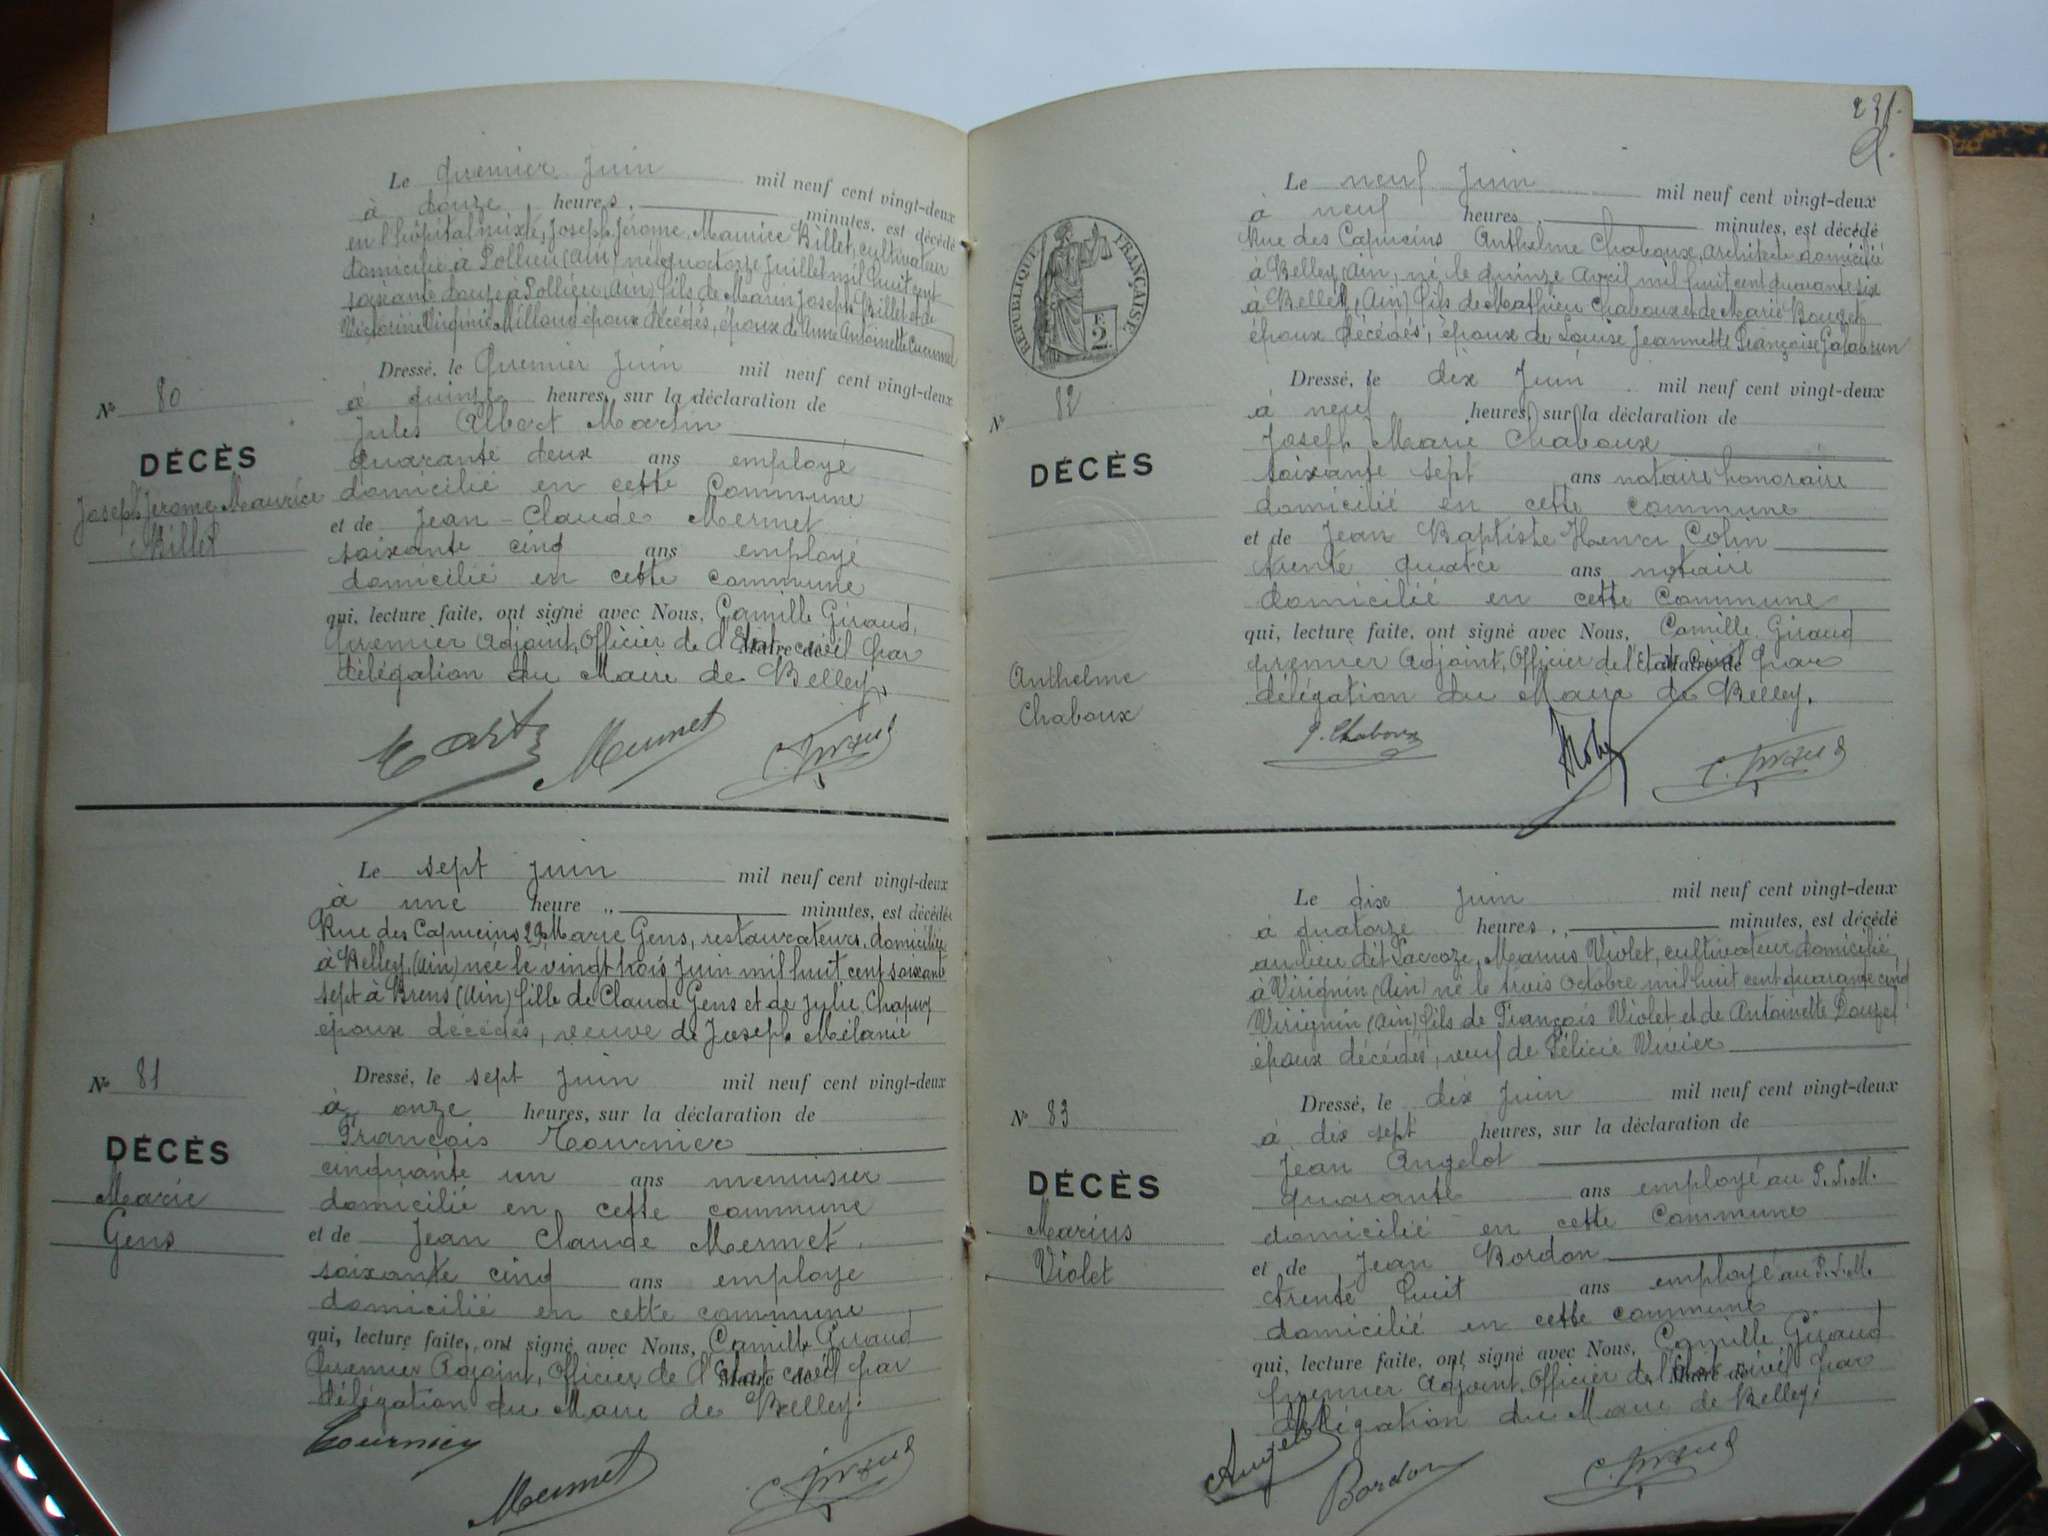 Le premier Juin mil neuf cent vingt-deux
à douze heures, minutes, est décédé
en l'hôpital mixte, Joseph Jérome Maurice Billet, cultivateur
domicilié à Pollieu (Ain) né le quatorze Juillet mil huit cent
soixante douze à Pollieu (Ain) fils de Marin Joseph Billet et de
Victorine Virginie Milloud époux décédés, époux de Anne Antoinette
Dressé, le Premier Juin mil neuf cent vingt-deux
à quinze heures, sur la déclaration de
Jules Albert Martin
quarante deux ans employé
domicilié en cette Commune
et de Jean-Claude Mermet
soixante cinq ans employé
domicilié en cette commune
qui, lecture faite, ont signé avec Nous, Camille Giraud,
premier Adjoint, Officier de l'Etat civil par
Maire de
délégation du Maire de Belley.
Nº 80
DÉCÈS
Joseph Jerome Maurice
Billet
Mermet
C. Giraud
Le sept Juin mil neuf cent vingt-deux
à une heure „ minutes, est décédée
Rue des Capucins 29 Marie Gens, restaurateur, domiciliée
à Belley (Ain) née le vingt trois Juin mil huit cent soixante
sept à Brens (Ain) fille de Claude Gens et de Julie Chapuy
époux décédés, veuve de Joseph Mélanie
Dressé, le sept Juin mil neuf cent vingt-deux
à onze heures, sur la déclaration de
François Tournier
cinquante un ans menuisier
domicilié en cette commune
et de Jean Claude Mermet
soixante cinq ans employe
domicilié en cette commune
qui, lecture faite, ont signé avec Nous, Camille Giraud
Premier Adjoint, Officier de l'Etat civil par
Maire de
délégation du Maire de Belley.
Nº 81
DÉCÈS
Marie
Gens
Tournier
Mermet
C. Giraud
231.
Le neuf Juin mil neuf cent vingt-deux
à neuf heures, minutes, est décédé
Rue des Capucins Anthelme Chaboux, architecte domicilié
à Belley (Ain, né le quinze Avril mil huit cent quarante six
à Belley (Ain) fils de Mathieu Chaboux et de Marie
époux décédés, époux de Louise Jeannette Françoise
RÉPUBLIQUE FRANÇAISE
2
Dressé, le dix Juin mil neuf cent vingt-deux
à neuf heures, sur la déclaration de
Joseph Marie Chaboux
soixante sept ans notaire honoraire
domicilié en cette commune
et de Jean Baptiste Henri Colin
trente quatre ans notaire
domicilié en cette Commune
qui, lecture faite, ont signé avec Nous, Camille Giraud
premier Adjoint, Officier de l'Etat Civil par
Maire de
délégation du Maire de Belley.
Nº 82
DÉCÈS
Anthelme
Chaboux
J. Chaboux
C. Giraud
Le dix Juin mil neuf cent vingt-deux
à quatorze heures, minutes, est décédé
au lieu dit Marius Violet, cultivateur domicilié
à Virignin (Ain) né le trois Octobre mil huit cent quarante cinq
Virignin (Ain) fils de François Violet et de Antoinette
époux décédés, veuf de Félicie Vivier
Dressé, le dix Juin mil neuf cent vingt-deux
à dix sept heures, sur la déclaration de
Jean Angelot
quarante ans employé au P.L.M.
domicilié en cette Commune
et de Jean Bordon
trente huit ans employé au P.L.M.
domicilié en cette commune
qui, lecture faite, ont signé avec Nous, Camille Giraud
premier Adjoint, Officier de l'Etat civil par
Maire de
délégation du Maire de Belley.
Nº 83
DÉCÈS
Marius
Violet
Angelot
Bordon
C. Giraud